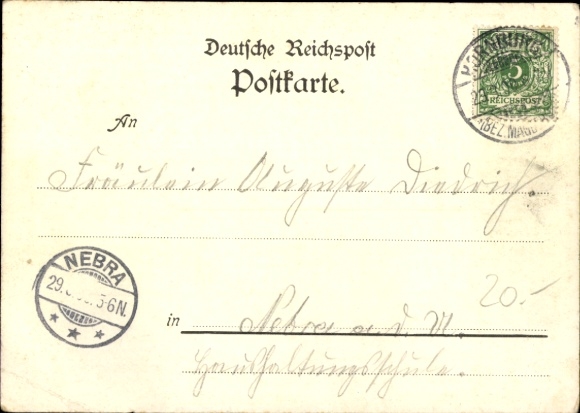 Deutsche Reichspost
Postkarte.
5
REICHSPOST
(BEZ.
An
Fräulein Auguste Diedrich.
NEBRA
29. 5-6N.
20.-
in Nebra a. d. U.
Haushaltungsschule.